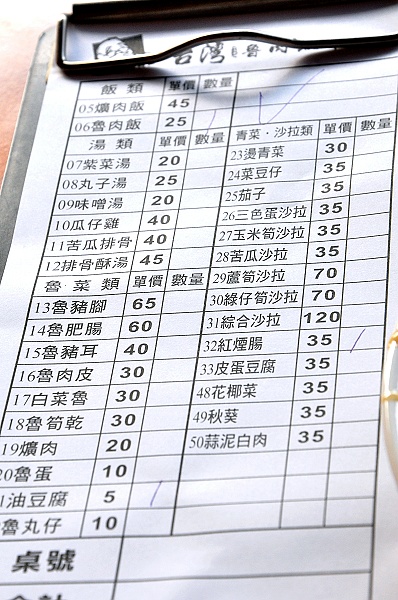 台灣魯肉
飯類 單價 數量
05爌肉飯 45
06魯肉飯 25
湯類 單價 數量
07紫菜湯 20
08丸子湯 25
09味噌湯 20
10瓜仔雞 40
11苦瓜排骨 40
12排骨酥湯 45
魯菜類 單價 數量
13魯豬腳 65
14魯肥腸 60
15魯豬耳 40
16魯肉皮 30
17白菜魯 30
18魯筍乾 30
19爌肉 20
20魯蛋 10
1油豆腐 5
魯丸仔 10
桌號
青菜·沙拉類 單價 數量
23燙青菜 30
24菜豆仔 35
25茄子 35
26三色蛋沙拉 35
27玉米筍沙拉 35
28苦瓜沙拉 35
29蘆筍沙拉 70
30綠仔筍沙拉 70
31綜合沙拉 120
32紅煙腸 35
33皮蛋豆腐 35
48花椰菜 35
49秋葵 35
50蒜泥白肉 35